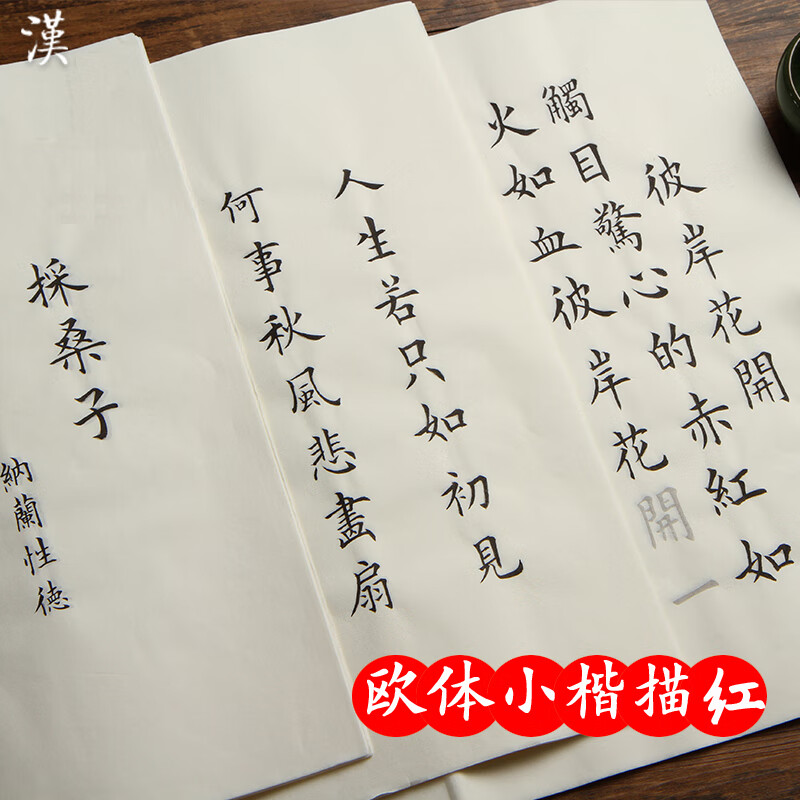 漢
彼岸花開
觸目驚心的赤紅如
火如血彼岸花開一
人生若只如初見
何事秋風悲畫扇
採桑子
納蘭性德
欧体小楷描红